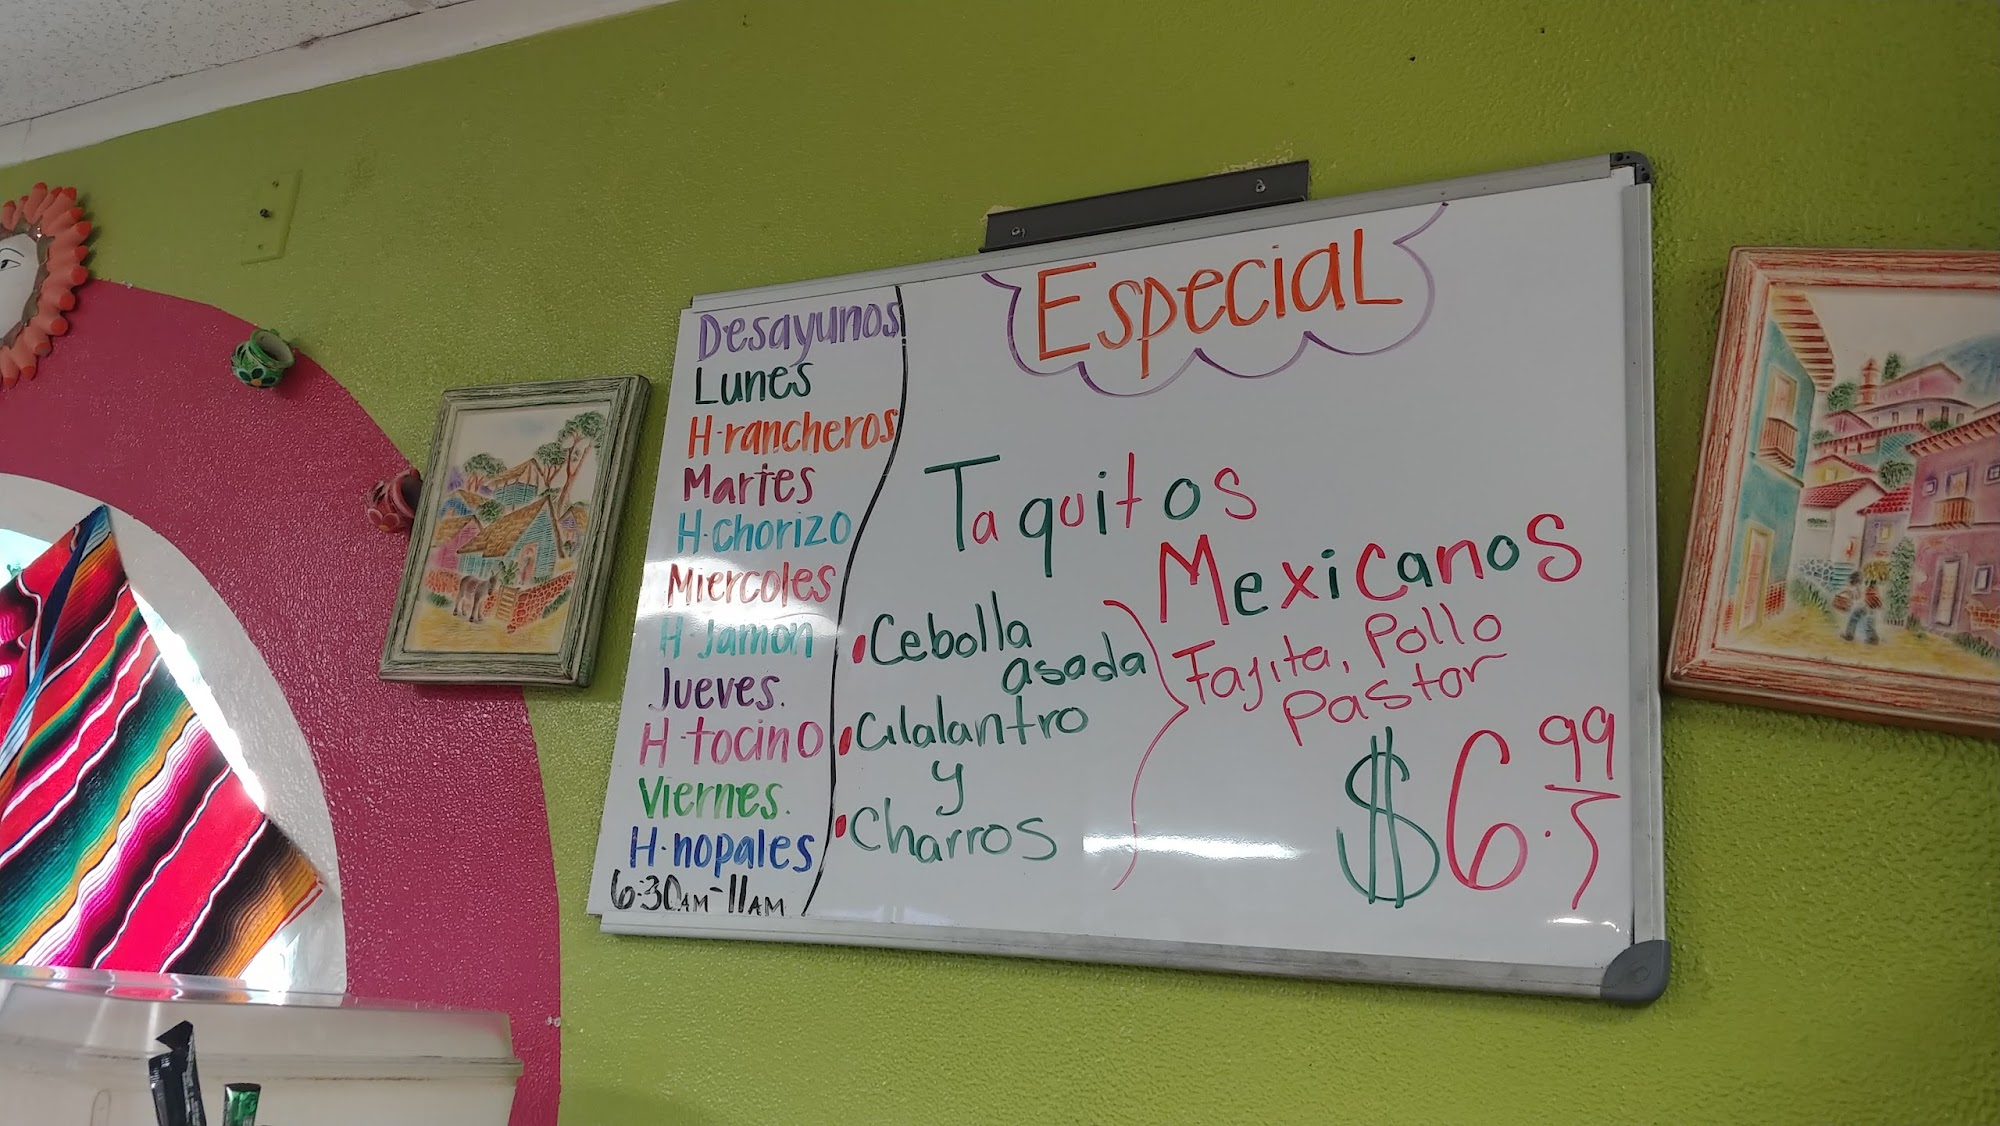 Desayunos
Lunes
H-rancheros
Martes
H-chorizo
Miercoles
H-Jamon
Jueves.
H-tocino
Viernes.
H-nopales
6:30AM-11AM
Especial
Taquitos
Mexicanos
Fajita, Pollo
Pastor
$6.99
•Cebolla
asada
•Cilalantro
y
•Charros